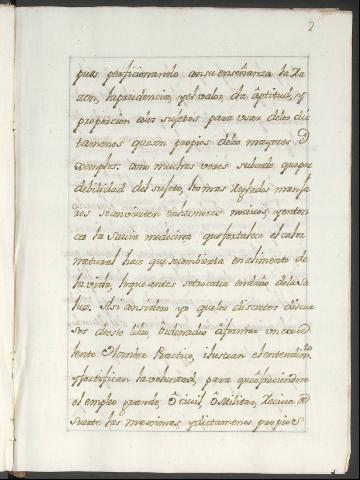 2
pues perficionando con su enseñanza la Ra
zon, la prudencia, y el valor, da âptitud, y
proporcion a los sujetos para usar de los dic
tamenes que son propios de los mayores
exemplos. como muchas vezes subcede que por
debilidad del sujeto, los mas Reglados manja
res se convierten en humores nocivos, y enton
ces la savia medicina que fortalece el calor
natural haz que se combierta en alimento de
la vida, lo que antes se trocava en daño de la sa
lud. Asi considero yo que los discretos discur
sos de este libro, ôrdenados â formar un excê
lente Hombre Practico, ilustran el entendimto
y fortifican la voluntad, para que ôfreciendose
el empleo grande, ô civil, ô Militar, Reciva de
suerte las maximas y dictamenes propios